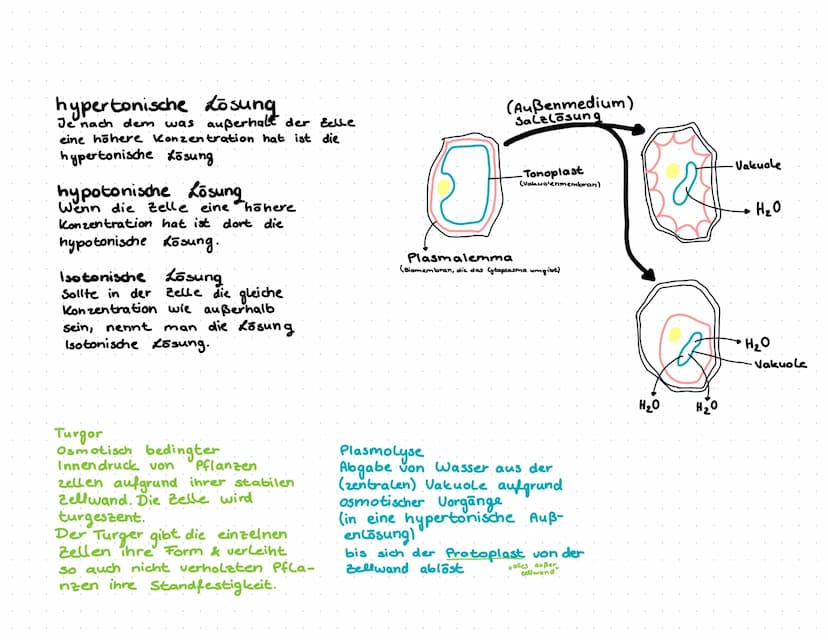 hypertonische Lösung
Je nach dem was außerhalb der Zelle
eine höhere Konzentration hat ist die
hypertonische Lösung
hypotonische Lösung
Wenn die Zelle eine höhere
Konzentration hat ist dort die
hypotonische Lösung.
Isotonische Lösung
Sollte in der Zelle die gleiche
Konzentration wie außerhalb
sein, nennt man die Lösung
Isotonische Lösung.
(Außenmedium)
Salzlösung
Tonoplast
(Vakuolenmembran)
Plasmalemma
(Biomembran, die das Cytoplasma umgibt)
Vakuole
H₂O
H₂O
Vakuole
H₂O
H₂O
Turgor
Osmotisch bedingter
Innendruck von Pflanzen
zellen aufgrund ihrer stabilen
Zellwand. Die Zelle wird
turgeszent.
Der Turger gibt die einzelnen
Zellen ihre Form & verleiht
so auch nicht verholzten Pfla-
nzen ihre Standfestigkeit.
Plasmolyse
Abgabe von Wasser aus der
(zentralen) Vakuole aufgrund
osmotischer Vorgänge
(in eine hypertonische Auß-
enlösung)
bis sich der Protoplast von der
Zellwand ablöst
"alles außer
Zellwand"